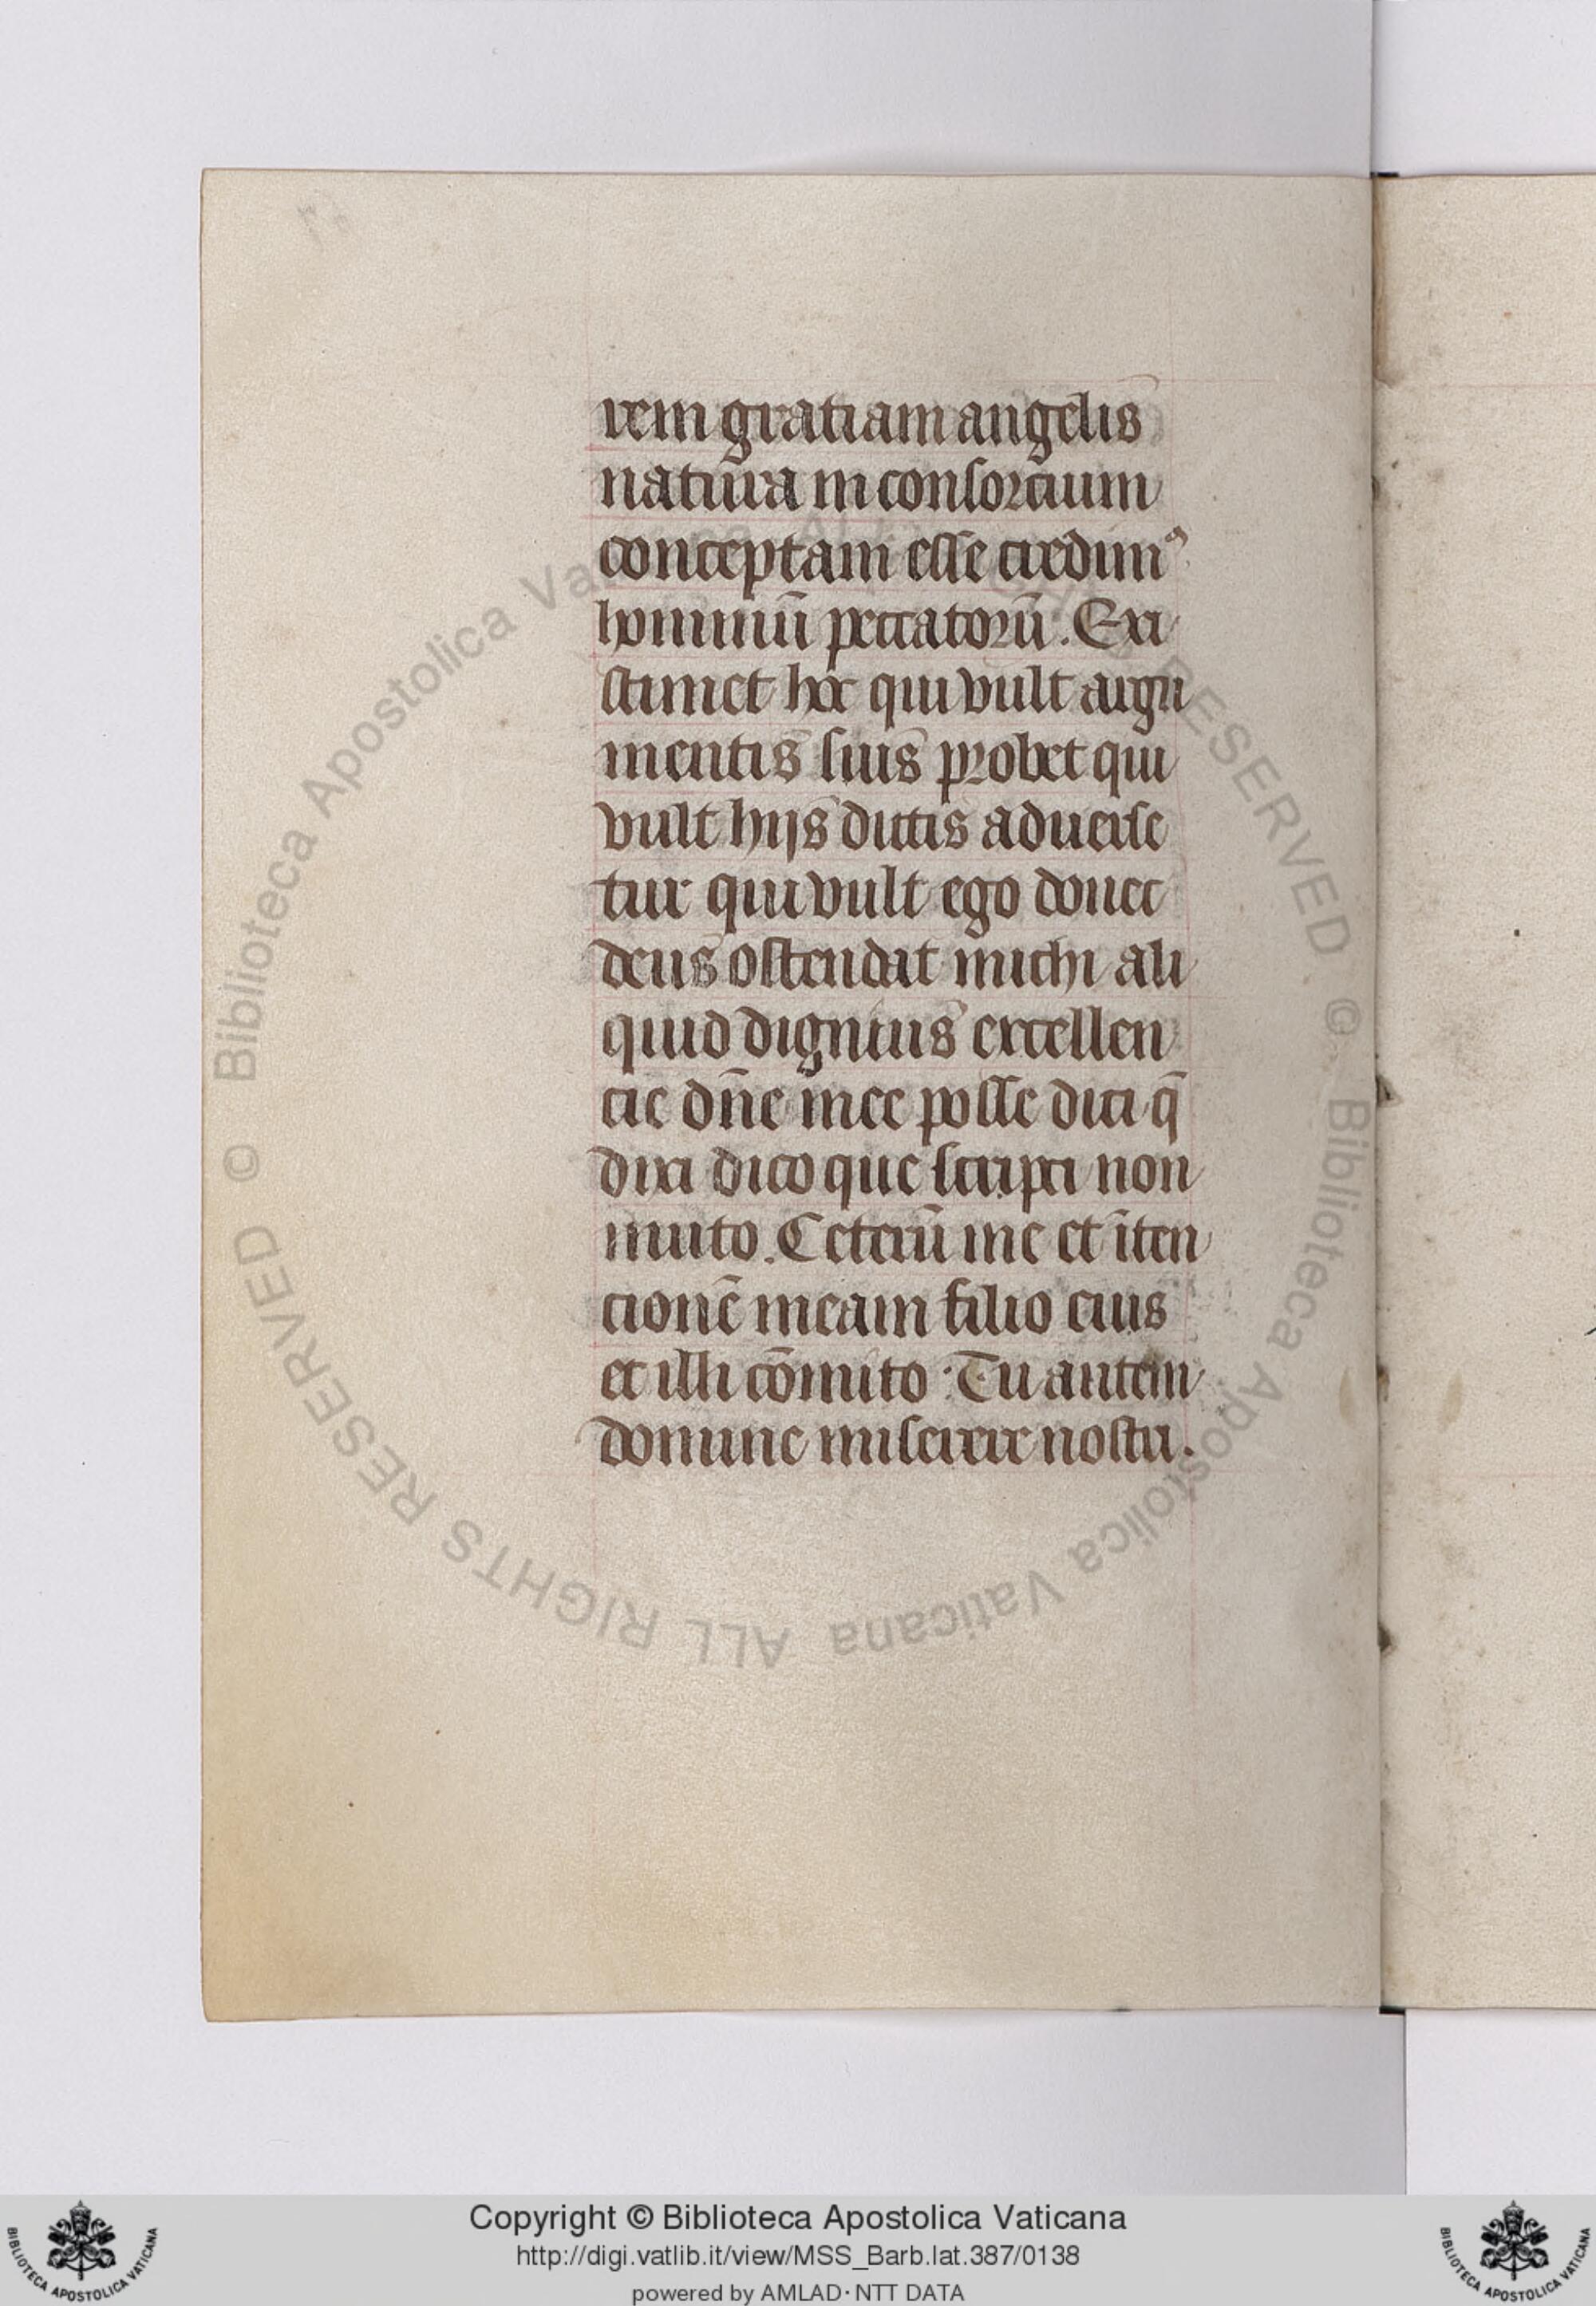 rem gratiam angelis
natura in consorcium
conceptam esse credimꝰ
hominū peccatorū. Exi
stimet hoc qui vult argu
mentis suis probet qui
vult hijs dictis aduerse
tur qui vult ego donec
deus ostendat michi ali
quid dignius excellen
cie dn̄e mee posse dici q̄
dixi dico que scripsi non
muto. Ceterū me et īten
cionē meam filio eius
et illi cōmito. Tu autem
domine miserere nostri.
Copyright © Biblioteca Apostolica Vaticana
http://digi.vatlib.it/view/MSS_Barb.lat.387/0138
powered by AMLAD·NTT DATA
© Biblioteca Apostolica Vaticana ALL RIGHTS RESERVED
© Biblioteca Apostolica Vaticana ALL RIGHTS RESERVED
BIBLIOTECA APOSTOLICA VATICANA
BIBLIOTECA APOSTOLICA VATICANA